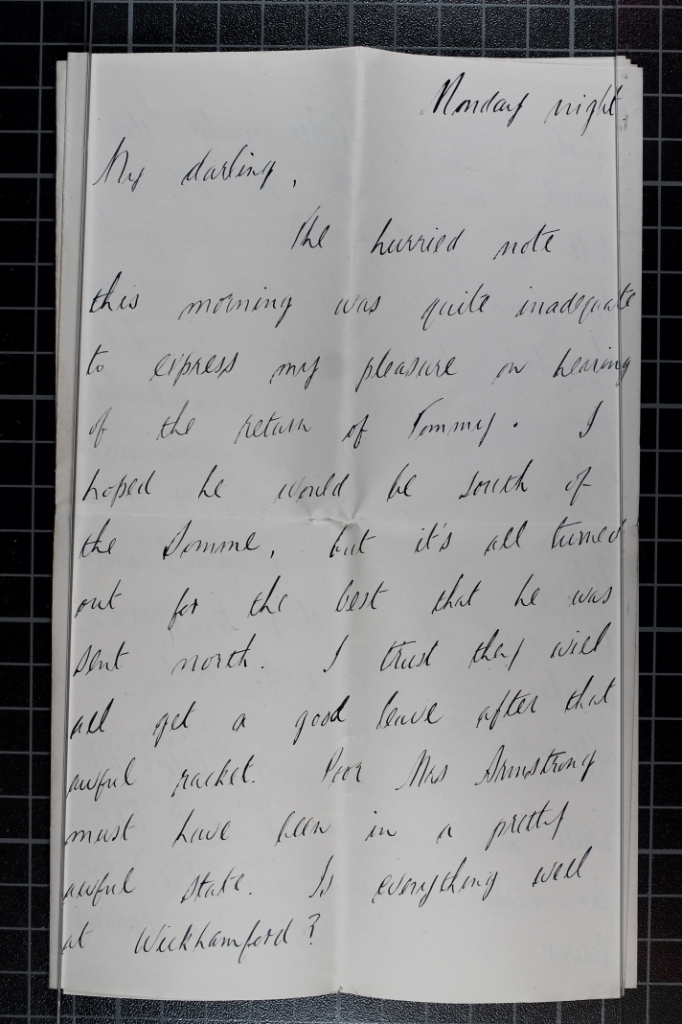 Monday night
My darling,
The hurried note
this morning was quite inadequate
to express my pleasure on hearing
of the return of Tommy. I
hoped he would be south of
the Somme, but it's all turned
out for the best that he was
sent north. I trust they will
all get a good leave after that
awful racket. Poor Mrs Armstrong
must have been in a pretty
awful state. Is everything well
at Wickhamford?